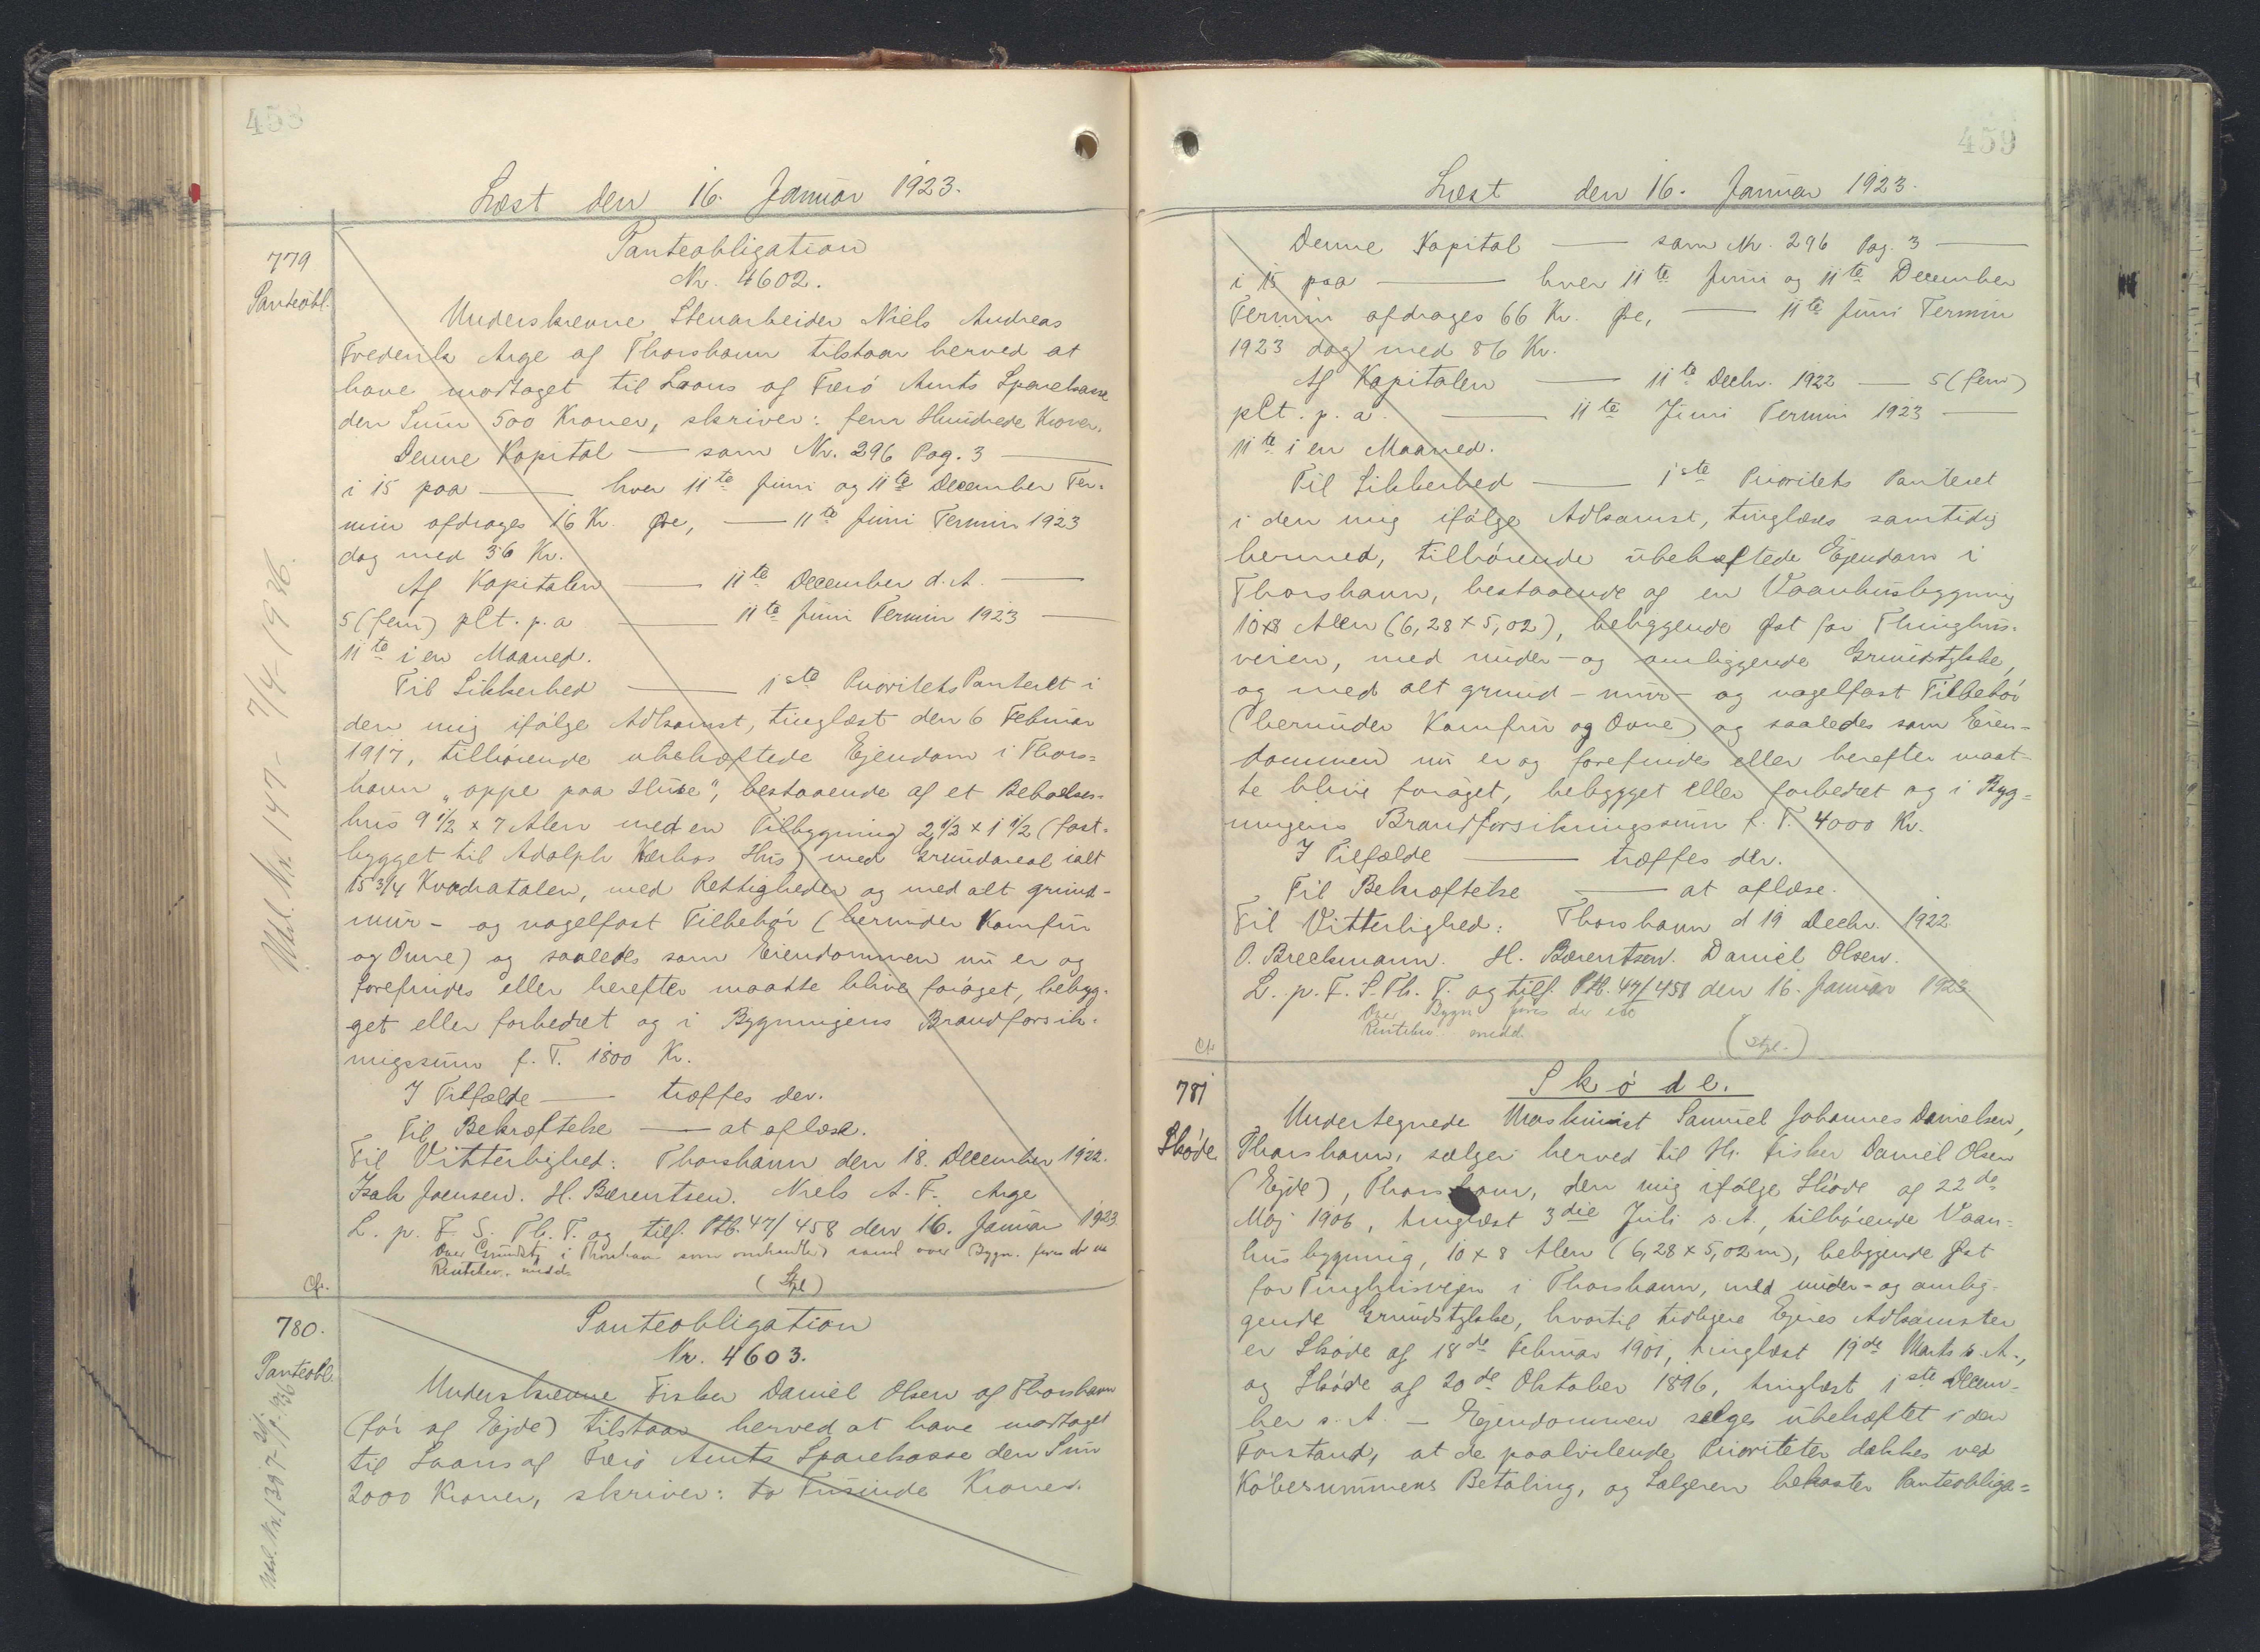 458
Læst den 16. Januar 1923.
779
Panteobl.
Panteobligation
Nr. 4602.
Underskrevne Stenarbeider Niels Andreas
Frederik Arge af Thorshavn tilstaar herved at
have modtaget til Laans af Færø Amts Sparekasse
den Sum 500 Kroner, skriver: fem Hundrede Kroner.
Denne Kapital — som Nr. 296 Pag. 3 —
i 15 paa — hver 11te Juni og 11te December Ter-
min afdrages 16 Kr. Øre, — 11te Juni Termin 1923
dog med 36 Kr.
Af Kapitalen — 11te December d. A. —
5 (fem) pCt. p. a — 11te Juni Termin 1923 —
11te i en Maaned.
Til Sikkerhed — 1ste Prioritets Panteret i
den mig ifølge Adkomst, tinglæst den 6 Februar
1917, tilhørende ubehæftede Ejendom i Thors-
havn "oppe paa Huse", bestaaende af et Beboelses-
hus 9 1/2 x 7 Alen med en Tilbygning 2 1/2 x 1 1/2 (fast-
bygget til Adolph Kerbos Hus) med Grundareal ialt
15 3/4 Kvadratalen, med Rettigheder og med alt grund-
mur- og nagelfast Tilbehør (herunder Komfur
og Ovne) og saaledes som Eiendommen nu er og
forefindes eller herefter maatte blive forøget, bebyg-
get eller forbedret og i Bygningens Brandforsik-
ringssum f. T. 1800 Kr.
I Tilfælde — træffes der.
Til Bekræftelse — at aflæse.
Til Vitterlighed: Thorshavn den 18. December 1922.
Isak Joensen. H. Bærentsen. Niels A. F. Arge
L. p. F. S. Th. T. og tilf. Ptb. 47/458 den 16. Januar 1923
Over Grundst. i Thorshavn som omhandlet samt over Bygn. føres der
Rentebev. medd.
(Stpl)
Cfr.
Udsl. Nr. 147 - 7/4-1936.
780.
Panteobl.
Panteobligation
Nr. 4603.
Underskrevne Fisker Daniel Olsen af Thorshavn
(før af Ejde) tilstaar herved at have modtaget
til Laans af Færø Amts Sparekasse den Sum
2000 Kroner, skriver: to Tusinde Kroner.
459
Læst den 16. Januar 1923.
Denne Kapital — som Nr. 296 Pag. 3 —
i 15 paa — hver 11te Juni og 11te December
Termin afdrages 66 Kr. Øre, — 11te Juni Termin
1923 dog med 86 Kr.
Af Kapitalen — 11te Decbr. 1922 — 5 (fem)
pCt. p. a. — 11te Juni Termin 1923 —
11te i en Maaned.
Til Sikkerhed — 1ste Prioritets Panteret
i den mig ifølge Adkomst, tinglæses samtidig
hermed, tilhørende ubehæftede Ejendom i
Thorshavn, bestaaende af en Vaanhusbygning
10x8 Alen (6,28 x 5,02), beliggende Øst for Thinghus-
veien, med under- og omliggende Grundstykke,
og med alt grund- mur- og nagelfast Tilbehør
(herunder Komfur og Ovne) og saaledes som Eien-
dommen nu er og forefindes eller herefter maat-
te blive forøget, bebygget eller forbedret og i Byg-
ningens Brandforsikringssum f. T. 4000 Kr.
I Tilfælde — træffes der.
Til Bekræftelse — at aflæse.
Til Vitterlighed: Thorshavn d 19 Decbr. 1922
O. Breckmann. H. Bærentsen. Daniel Olsen.
L. p. F. S. Th. T. og tilf. Ptb. 47/458 den 16. Januar 1923
Over Bygn føres der
Rentebev. medd.
(Stpl.)
Cfr
781
Skøde
Skøde.
Undertegnede Maskinist Samuel Johannes Danielsen,
Thorshavn, sælger herved til Hr. Fisker Daniel Olsen
(Ejde), Thorshavn, den mig ifølge Skøde af 22de
Maj 1906, tinglæst 3die Juli s. A., tilhørende Vaan-
husbygning, 10 x 8 Alen (6,28 x 5,02 m), beliggende Øst
for Tinghusvejen i Thorshavn, med under- og omlig-
gende Grundstykke, hvortil tidligere Ejeres Adkomster
er Skøde af 18de Februar 1901, tinglæst 19de Marts s. A.,
og Skøde af 20de Oktober 1896, tinglæst 1ste Decem-
ber s. A. — Ejendommen sælges ubehæftet i den
Forstand, at de paahvilende Prioriteter dækkes ved
Købesummens Betaling, og Sælgeren bekoster Panteobliga-